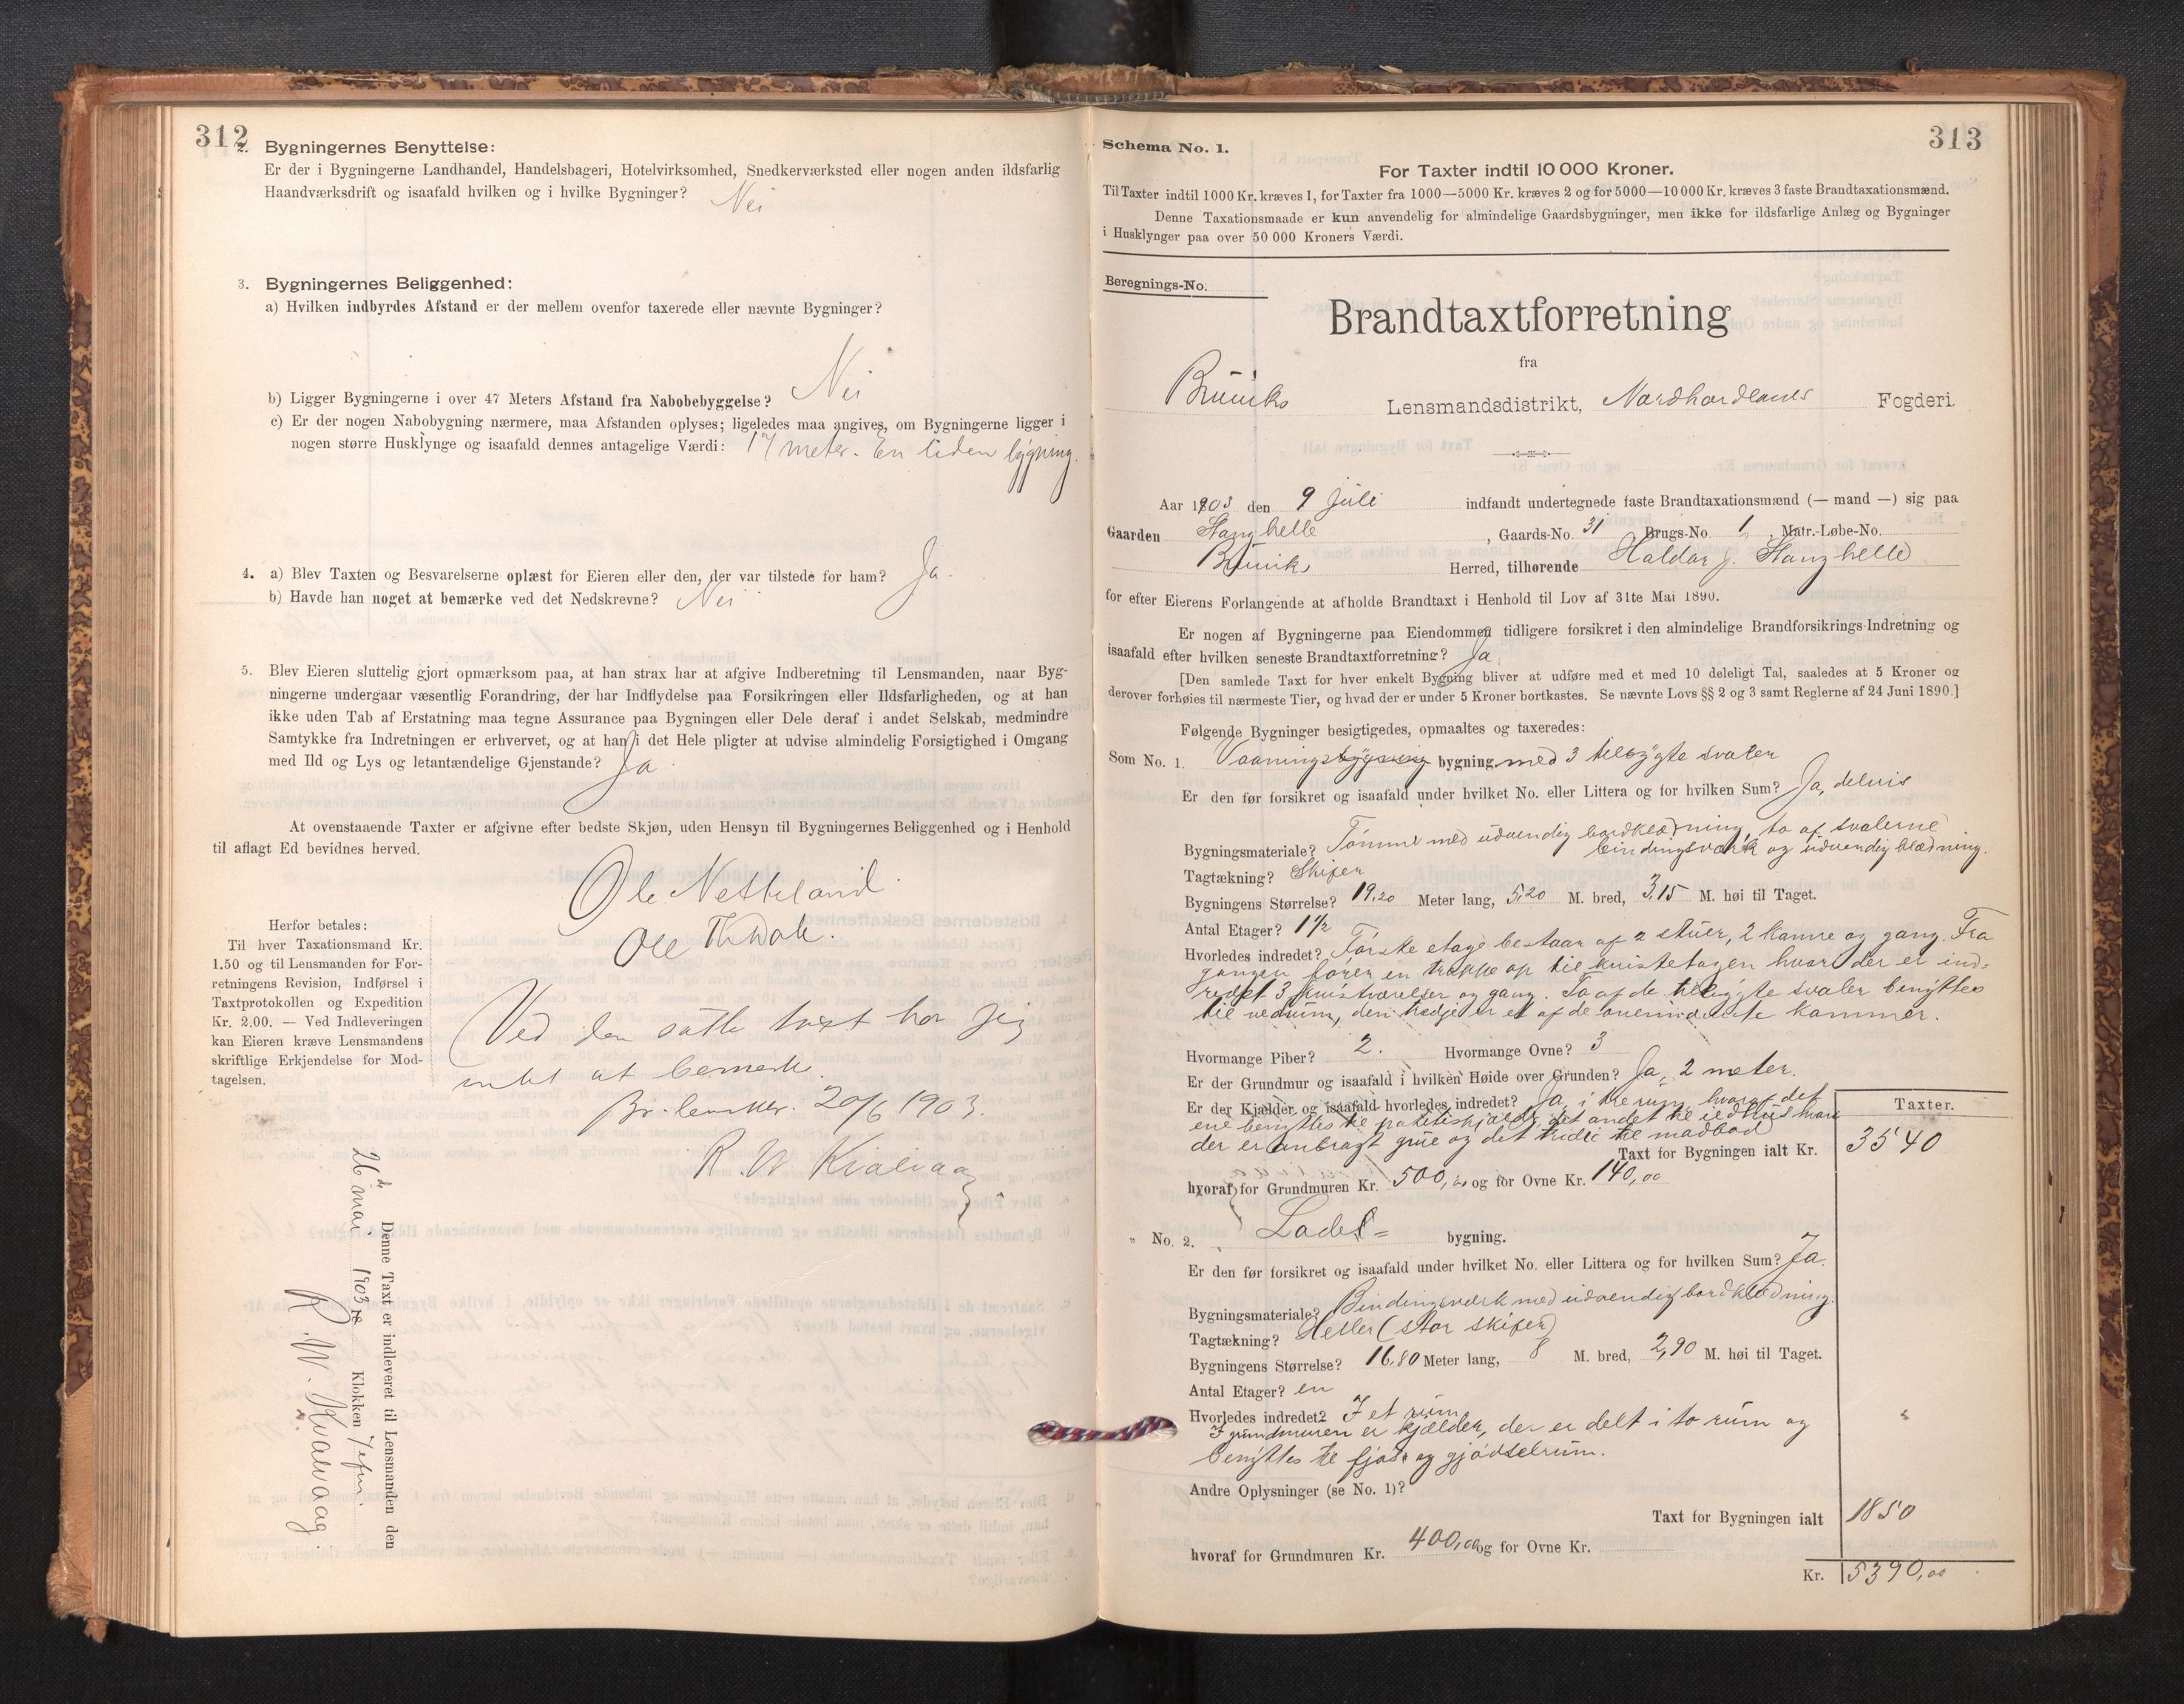 312
2. Bygningernes Benyttelse:
Er der i Bygningerne Landhandel, Handelsbageri, Hotelvirksomhed, Snedkerværksted eller nogen anden ildsfarlig
Haandværksdrift og isaafald hvilken og i hvilke Bygninger? Nei
3. Bygningernes Beliggenhed:
a) Hvilken indbyrdes Afstand er der mellem ovenfor taxerede eller nævnte Bygninger?
b) Ligger Bygningerne i over 47 Meters Afstand fra Nabobebyggelse? Nei
c) Er der nogen Nabobygning nærmere, maa Afstanden oplyses; ligeledes maa angives, om Bygningerne ligger i
nogen større Husklynge og isaafald dennes antagelige Værdi: 17 meter. En liden bygning.
4. a) Blev Taxten og Besvarelserne oplæst for Eieren eller den, der var tilstede for ham? Ja.
b) Havde han noget at bemærke ved det Nedskrevne? Nei
5. Blev Eieren sluttelig gjort opmærksom paa, at han strax har at afgive Indberetning til Lensmanden, naar Byg-
ningerne undergaar væsentlig Forandring, der har Indflydelse paa Forsikringen eller Ildsfarligheden, og at han
ikke uden Tab af Erstatning maa tegne Assurance paa Bygningen eller Dele deraf i andet Selskab, medmindre
Samtykke fra Indretningen er erhvervet, og at han i det Hele pligter at udvise almindelig Forsigtighed i Omgang
med Ild og Lys og letantændelige Gjenstande? Ja
At ovenstaaende Taxter er afgivne efter bedste Skjøn, uden Hensyn til Bygningernes Beliggenhed og i Henhold
til aflagt Ed bevidnes herved.
Ole Netteland.
Ole
Herfor betales:
Til hver Taxationsmand Kr.
1.50 og til Lensmanden for For-
retningens Revision, Indførsel i
Taxtprotokollen og Expedition
Kr. 2.00. — Ved Indleveringen
kan Eieren kræve Lensmandens
skriftlige Erkjendelse for Mod-
tagelsen.
Ved den satte taxt har jeg
intet at bemerke.
20/6 1903.
R. W Kvalvaag
Denne Taxt er indleveret til Lensmanden den
26de mai 1903 Klokken 7 efm.
R. W. Kvalvaag.
313
Schema No. 1.
For Taxter indtil 10 000 Kroner.
Til Taxter indtil 1000 Kr. kræves 1, for Taxter fra 1000—5000 Kr. kræves 2 og for 5000—10 000 Kr. kræves 3 faste Brandtaxationsmænd.
Denne Taxationsmaade er kun anvendelig for almindelige Gaardsbygninger, men ikke for ildsfarlige Anlæg og Bygninger
i Husklynger paa over 50 000 Kroners Værdi.
Beregnings-No.
Brandtaxtforretning
fra
Bruviks Lensmandsdistrikt, Nordhordlands Fogderi.
Aar 1903 den 9 juli indfandt undertegnede faste Brandtaxationsmænd (— mand —) sig paa
Gaarden Stanghelle, Gaards-No. 31 Brugs-No. 1, Matr.-Løbe-No.
Bruviks Herred, tilhørende Haldor J. Stanghelle
for efter Eierens Forlangende at afholde Brandtaxt i Henhold til Lov af 31te Mai 1890.
Er nogen af Bygningerne paa Eiendommen tidligere forsikret i den almindelige Brandforsikrings-Indretning og
isaafald efter hvilken seneste Brandtaxtforretning? Ja,
[Den samlede Taxt for hver enkelt Bygning bliver at udføre med et med 10 deleligt Tal, saaledes at 5 Kroner og
derover forhøies til nærmeste Tier, og hvad der er under 5 Kroner bortkastes. Se nævnte Lovs §§ 2 og 3 samt Reglerne af 24 Juni 1890.]
Følgende Bygninger besigtigedes, opmaaltes og taxeredes:
Som No. 1. Vaaningsbygning bygning. med 3 tilbygte svaler
Er den før forsikret og isaafald under hvilket No. eller Littera og for hvilken Sum? Ja, delvis
Bygningsmateriale? Tømmer med udvendig bordklædning, to af svalerne
bindingsværk og udvendig klædning.
Tagtækning? Skifer
Bygningens Størrelse? 19,20 Meter lang, 5,20 M. bred, 3,15 M. høi til Taget.
Antal Etager? 1 1/2
Hvorledes indredet? Første etage bestaar af 2 stuer, 2 kamre og gang. Fra
gangen fører en trappe op til kvistetagen hvori der er ind-
redet 3 kvistværelser og gang. To af de tilbygte svaler benyttes
til vedrum, den tredje er et af de ovennævnte kammer.
Hvormange Piber? 2. Hvormange Ovne? 3
Er der Grundmur og isaafald i hvilken Høide over Grunden? Ja, 2 meter.
Er der Kjælder og isaafald hvorledes indredet? Ja, i tre rum, hvoraf det
ene benyttes til potetiskjælder, det andet til ildhus hvori
der er anbragt grue og det tridie til madbod
Taxter.
Taxt for Bygningen ialt Kr. 3540
hvoraf for Grundmuren Kr. 500,00 og for Ovne Kr. 140,00
„ No. 2. Lade- bygning.
Er den før forsikret og isaafald under hvilket No. eller Littera og for hvilken Sum? Ja.
Bygningsmateriale? Bindingsværk med udvendig bordklædning.
Tagtækning? Heller (stor skifer)
Bygningens Størrelse? 16,80 Meter lang, 8 M. bred, 2,90 M. høi til Taget.
Antal Etager? en
Hvorledes indredet? I et rum
I grundmuren er kjælder, der er delt i to rum og
benyttes til fjøs og gjødselrum.
Andre Oplysninger (se No. 1)?
Taxt for Bygningen ialt 1850
hvoraf for Grundmuren Kr. 400,00 og for Ovne Kr.
Kr. 5390,00